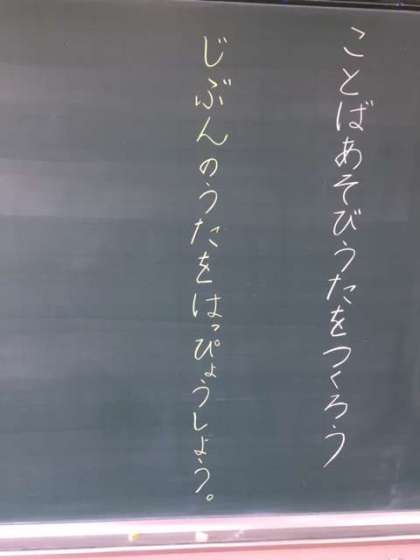 ことばあそびうたをつくろう
じぶんのうたをはっぴょうしよう。